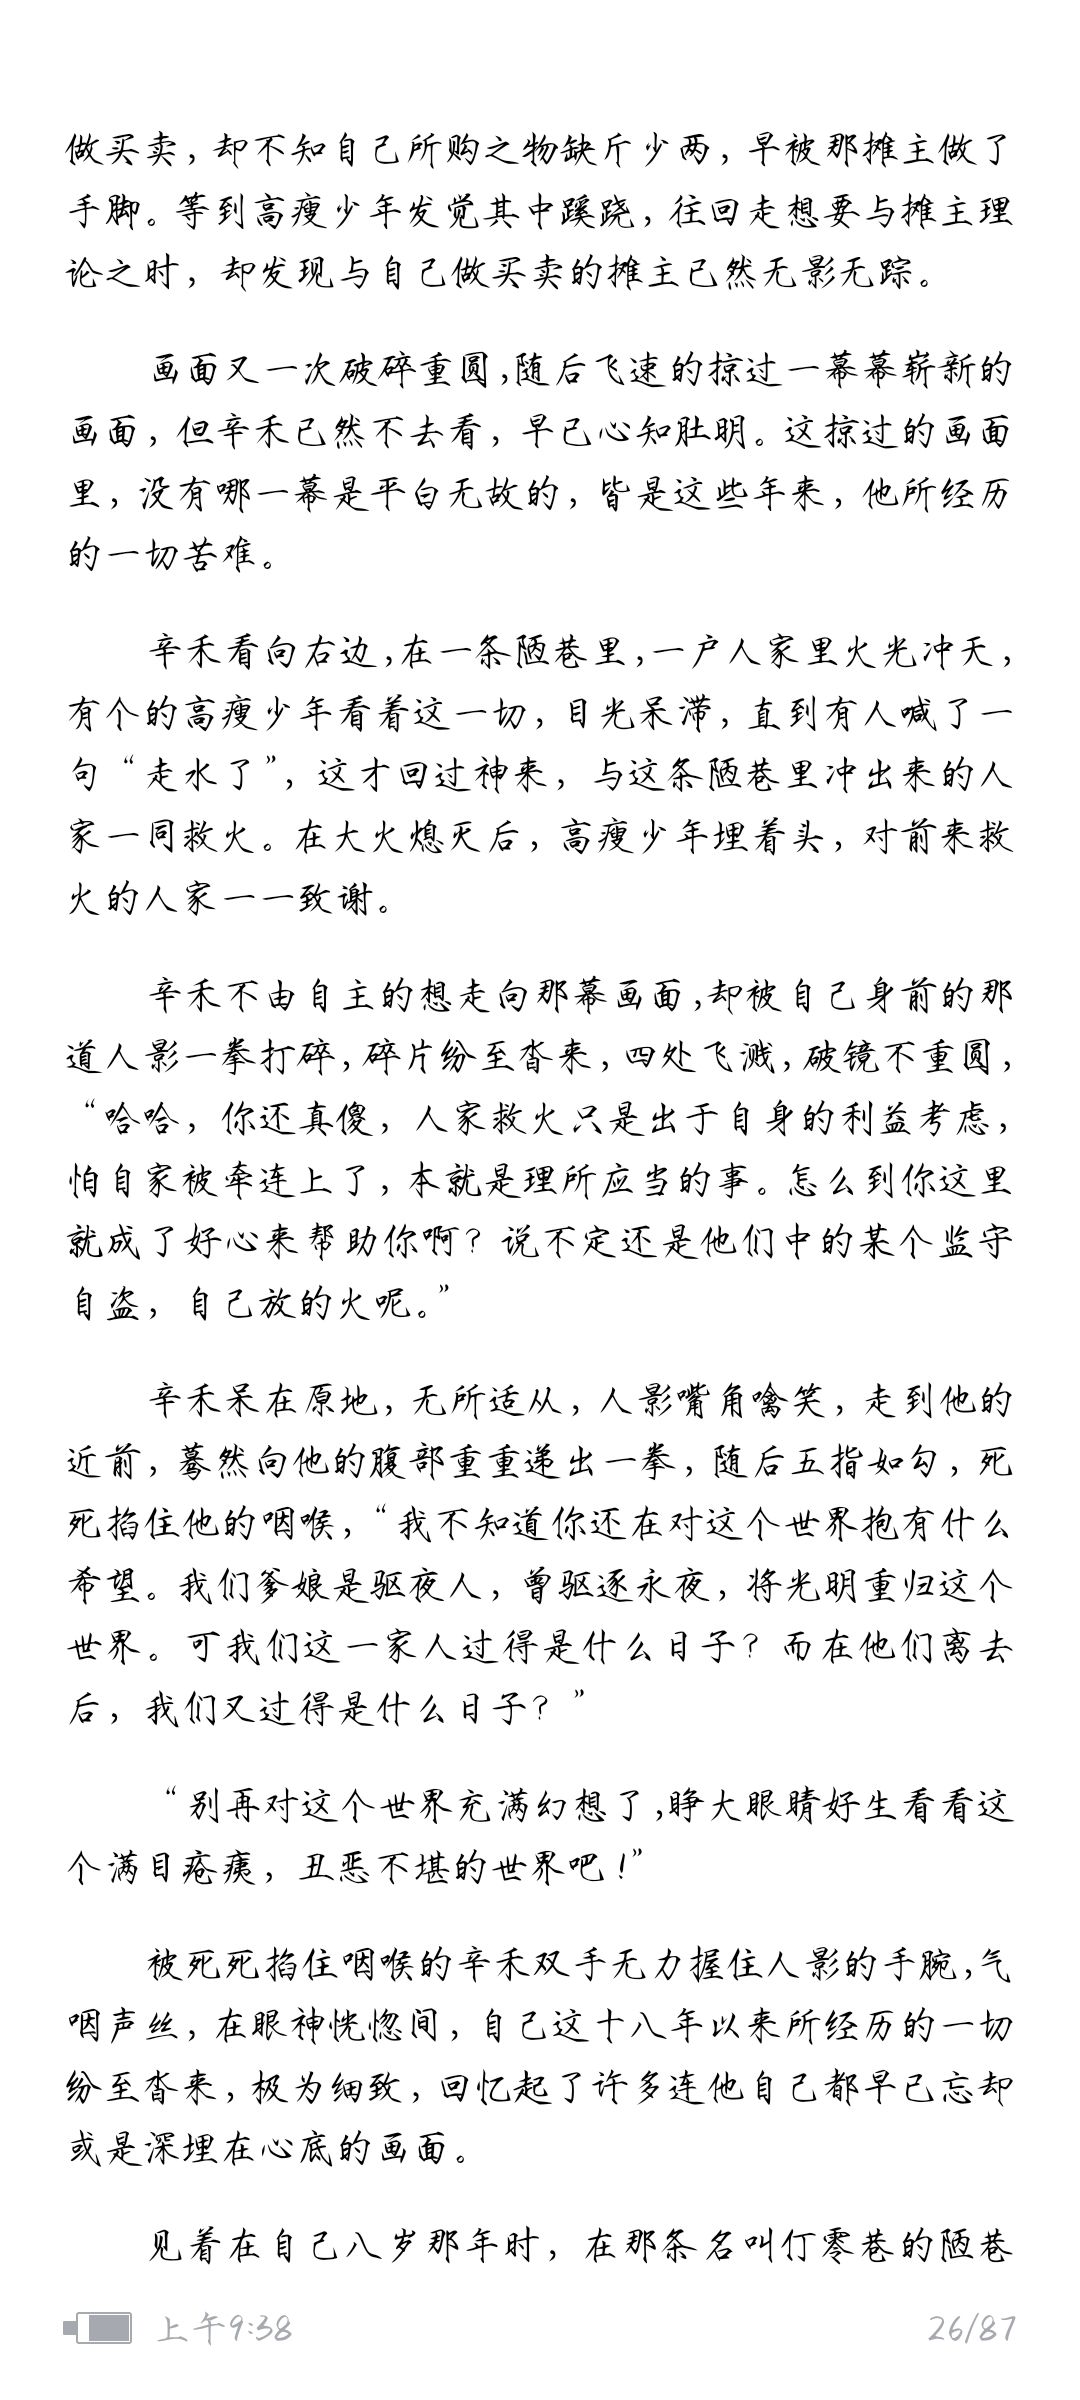 做买卖，却不知自己所购之物缺斤少两，早被那摊主做了
手脚。等到高瘦少年发觉其中蹊跷，往回走想要与摊主理
论之时，却发现与自己做买卖的摊主已然无影无踪。
画面又一次破碎重圆，随后飞速的掠过一幕幕崭新的
画面，但辛禾已然不去看，早已心知肚明。这掠过的画面
里，没有哪一幕是平白无故的，皆是这些年来，他所经历
的一切苦难。
辛禾看向右边，在一条陋巷里，一户人家里火光冲天，
有个的高瘦少年看着这一切，目光呆滞，直到有人喊了一
句“走水了”，这才回过神来，与这条陋巷里冲出来的人
家一同救火。在大火熄灭后，高瘦少年埋着头，对前来救
火的人家一一致谢。
辛禾不由自主的想走向那幕画面，却被自己身前的那
道人影一拳打碎，碎片纷至沓来，四处飞溅，破镜不重圆，
“哈哈，你还真傻，人家救火只是出于自身的利益考虑，
怕自家被牵连上了，本就是理所应当的事。怎么到你这里
就成了好心来帮助你啊？说不定还是他们中的某个监守
自盗，自己放的火呢。”
辛禾呆在原地，无所适从，人影嘴角噙笑，走到他的
近前，蓦然向他的腹部重重递出一拳，随后五指如勾，死
死掐住他的咽喉，“我不知道你还在对这个世界抱有什么
希望。我们爹娘是驱夜人，曾驱逐永夜，将光明重归这个
世界。可我们这一家人过得是什么日子？而在他们离去
后，我们又过得是什么日子？”
“别再对这个世界充满幻想了，睁大眼睛好生看看这
个满目疮痍，丑恶不堪的世界吧！”
被死死掐住咽喉的辛禾双手无力握住人影的手腕，气
咽声丝，在眼神恍惚间，自己这十八年以来所经历的一切
纷至沓来，极为细致，回忆起了许多连他自己都早已忘却
或是深埋在心底的画面。
见着在自己八岁那年时，在那条名叫仃零巷的陋巷
上午9:38
26/87